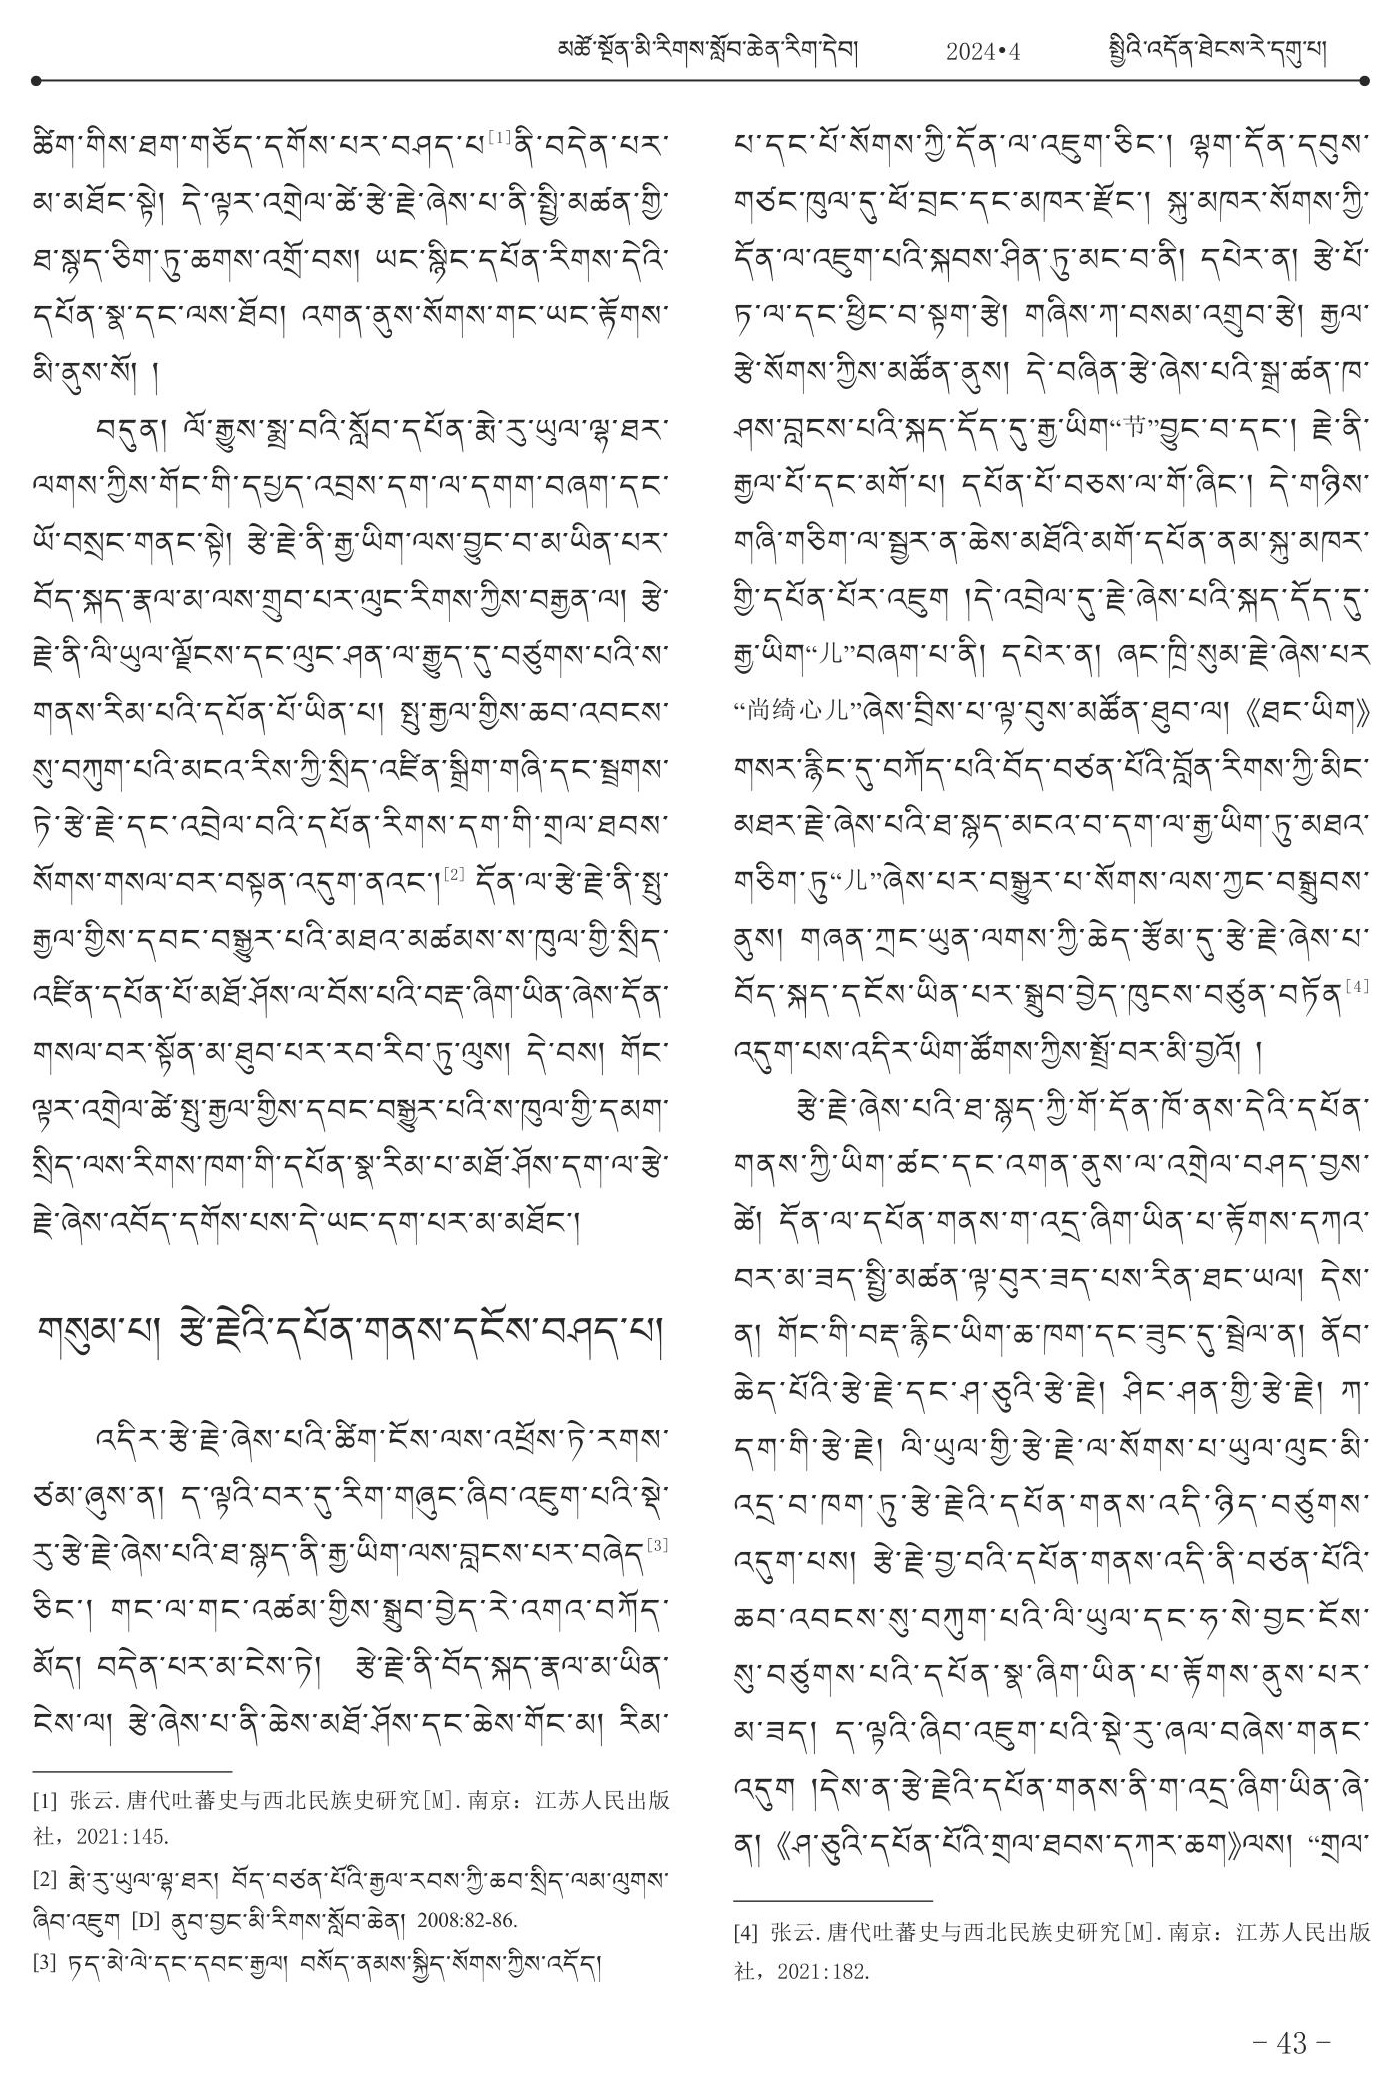 མཚོ་སྔོན་མི་རིགས་སློབ་ཆེན་རིག་དེབ། 2024•4 སྤྱིའི་འདོན་ཐེངས་རེ་དགུ་པ།
ཚིག་གིས་ཐག་གཅོད་དགོས་པར་བཤད་པ[1]ནི་བདེན་པར་
མ་མཐོང་སྟེ། དེ་ལྟར་འགྲེལ་ཚེ་རྩེ་རྗེ་ཞེས་པ་ནི་སྤྱི་མཚན་གྱི་
ཐ་སྙད་ཅིག་ཏུ་ཆགས་འགྲོ་བས། ཡང་སྙིང་དཔོན་རིགས་དེའི་
དཔོན་སྣ་དང་ལས་ཐོབ། འགན་ནུས་སོགས་གང་ཡང་རྟོགས་
མི་ནུས་སོ། །
བདུན། ལོ་རྒྱུས་སྨྲ་བའི་སློབ་དཔོན་རྨེ་རུ་ཡུལ་ལྷ་ཐར་
ལགས་ཀྱིས་གོང་གི་དཔྱད་འབྲས་དག་ལ་དགག་བཞག་དང་
ཡོ་བསྲང་གནང་སྟེ། རྩེ་རྗེ་ནི་རྒྱ་ཡིག་ལས་བྱུང་བ་མ་ཡིན་པར་
བོད་སྐད་རྣལ་མ་ལས་གྲུབ་པར་ལུང་རིགས་ཀྱིས་བརྒྱན་ལ། རྩེ་
རྗེ་ནི་ལི་ཡུལ་ལྗོངས་དང་ལུང་ཤན་ལ་རྒྱུད་དུ་བཙུགས་པའི་ས་
གནས་རིམ་པའི་དཔོན་པོ་ཡིན་པ། སྤུ་རྒྱལ་གྱིས་ཆབ་འབངས་
སུ་བཀུག་པའི་མངའ་རིས་ཀྱི་སྲིད་འཛིན་སྒྲིག་གཞི་དང་སྦྲགས་
ཏེ་རྩེ་རྗེ་དང་འབྲེལ་བའི་དཔོན་རིགས་དག་གི་གྲལ་ཐབས་
སོགས་གསལ་བར་བསྟན་འདུག་ནའང་།[2] དོན་ལ་རྩེ་རྗེ་ནི་སྤུ་
རྒྱལ་གྱིས་དབང་བསྒྱུར་པའི་མཐའ་མཚམས་ས་ཁུལ་གྱི་སྲིད་
འཛིན་དཔོན་པོ་མཐོ་ཤོས་ལ་བོས་པའི་བརྡ་ཞིག་ཡིན་ཞེས་དོན་
གསལ་བར་སྟོན་མ་ཐུབ་པར་རབ་རིབ་ཏུ་ལུས། དེ་བས། གོང་
ལྟར་འགྲེལ་ཚེ་སྤུ་རྒྱལ་གྱིས་དབང་བསྒྱུར་པའི་ས་ཁུལ་གྱི་དམག་
སྲིད་ལས་རིགས་ཁག་གི་དཔོན་སྣ་རིམ་པ་མཐོ་ཤོས་དག་ལ་རྩེ་
རྗེ་ཞེས་འབོད་དགོས་པས་དེ་ཡང་དག་པར་མ་མཐོང་།
གསུམ་པ། རྩེ་རྗེའི་དཔོན་གནས་དངོས་བཤད་པ།
འདིར་རྩེ་རྗེ་ཞེས་པའི་ཚིག་ངོས་ལས་འཕྲོས་ཏེ་རགས་
ཙམ་ཞུས་ན། ད་ལྟའི་བར་དུ་རིག་གཞུང་ཞིབ་འཇུག་པའི་སྡེ་
རུ་རྩེ་རྗེ་ཞེས་པའི་ཐ་སྙད་ནི་རྒྱ་ཡིག་ལས་བླངས་པར་བཞེད[3]
ཅིང་། གང་ལ་གང་འཚམ་གྱིས་སྒྲུབ་བྱེད་རེ་འགའ་བཀོད་
མོད། བདེན་པར་མ་ངེས་ཏེ། རྩེ་རྗེ་ནི་བོད་སྐད་རྣལ་མ་ཡིན་
ངེས་ལ། རྩེ་ཞེས་པ་ནི་ཆེས་མཐོ་ཤོས་དང་ཆེས་གོང་མ། རིམ་
[1] 张云.唐代吐蕃史与西北民族史研究[M].南京：江苏人民出版
社，2021:145.
[2] རྨེ་རུ་ཡུལ་ལྷ་ཐར། བོད་བཙན་པོའི་རྒྱལ་རབས་ཀྱི་ཆབ་སྲིད་ལམ་ལུགས་
ཞིབ་འཇུག [D] ནུབ་བྱང་མི་རིགས་སློབ་ཆེན། 2008:82-86.
[3] ཏད་མེ་ལེ་དང་དབང་རྒྱལ། བསོད་ནམས་སྐྱིད་སོགས་ཀྱིས་འདོད།
པ་དང་པོ་སོགས་ཀྱི་དོན་ལ་འཇུག་ཅིང་། ལྷག་དོན་དབུས་
གཙང་ཁུལ་དུ་ཕོ་བྲང་དང་མཁར་རྫོང་། སྐུ་མཁར་སོགས་ཀྱི་
དོན་ལ་འཇུག་པའི་སྐབས་ཤིན་ཏུ་མང་བ་ནི། དཔེར་ན། རྩེ་པོ་
ཏ་ལ་དང་ཕྱིང་བ་སྟག་རྩེ། གཞིས་ཀ་བསམ་འགྲུབ་རྩེ། རྒྱལ་
རྩེ་སོགས་ཀྱིས་མཚོན་ནུས། དེ་བཞིན་རྩེ་ཞེས་པའི་སྒྲ་ཚན་ཁ་
ཤས་བླངས་པའི་སྐད་དོད་དུ་རྒྱ་ཡིག“节”བྱུང་བ་དང་། རྗེ་ནི་
རྒྱལ་པོ་དང་མགོ་པ། དཔོན་པོ་བཅས་ལ་གོ་ཞིང་། དེ་གཉིས་
གཞི་གཅིག་ལ་སྦྱར་ན་ཆེས་མཐོའི་མགོ་དཔོན་ནམ་སྐུ་མཁར་
གྱི་དཔོན་པོར་འཇུག །དེ་འབྲེལ་དུ་རྗེ་ཞེས་པའི་སྐད་དོད་དུ་
རྒྱ་ཡིག“儿”བཞག་པ་ནི། དཔེར་ན། ཞང་ཁྲི་སུམ་རྗེ་ཞེས་པར
“尚绮心儿”ཞེས་བྲིས་པ་ལྟ་བུས་མཚོན་ཐུབ་ལ། 《ཐང་ཡིག》
གསར་རྙིང་དུ་བཀོད་པའི་བོད་བཙན་པོའི་བློན་རིགས་ཀྱི་མིང་
མཐར་རྗེ་ཞེས་པའི་ཐ་སྙད་མངའ་བ་དག་ལ་རྒྱ་ཡིག་ཏུ་མཐའ་
གཅིག་ཏུ“儿”ཞེས་པར་བསྒྱུར་པ་སོགས་ལས་ཀྱང་བསྒྲུབས་
ནུས། གཞན་ཀྲང་ཡུན་ལགས་ཀྱི་ཆེད་རྩོམ་དུ་རྩེ་རྗེ་ཞེས་པ་
བོད་སྐད་དངོས་ཡིན་པར་སྒྲུབ་བྱེད་ཁུངས་བཙུན་བཏོན[4]
འདུག་པས་འདིར་ཡིག་ཚོགས་ཀྱིས་སྤྲོ་བར་མི་བྱའོ། །
རྩེ་རྗེ་ཞེས་པའི་ཐ་སྙད་ཀྱི་གོ་དོན་ཁོ་ནས་དེའི་དཔོན་
གནས་ཀྱི་ཡིག་ཚང་དང་འགན་ནུས་ལ་འགྲེལ་བཤད་བྱས་
ཚེ། དོན་ལ་དཔོན་གནས་ག་འདྲ་ཞིག་ཡིན་པ་རྟོགས་དཀའ་
བར་མ་ཟད་སྤྱི་མཚན་ལྟ་བུར་ཟད་པས་རིན་ཐང་ཡལ། དེས་
ན། གོང་གི་བརྡ་རྙིང་ཡིག་ཆ་ཁག་དང་ཟུང་དུ་སྦྲེལ་ན། ནོབ་
ཆེད་པོའི་རྩེ་རྗེ་དང་ཤ་ཅུའི་རྩེ་རྗེ། ཤིང་ཤན་གྱི་རྩེ་རྗེ། ཀ་
དག་གི་རྩེ་རྗེ། ལི་ཡུལ་གྱི་རྩེ་རྗེ་ལ་སོགས་པ་ཡུལ་ལུང་མི་
འདྲ་བ་ཁག་ཏུ་རྩེ་རྗེའི་དཔོན་གནས་འདི་ཉིད་བཙུགས་
འདུག་པས། རྩེ་རྗེ་བྱ་བའི་དཔོན་གནས་འདི་ནི་བཙན་པོའི་
ཆབ་འབངས་སུ་བཀུག་པའི་ལི་ཡུལ་དང་ཧ་སེ་བྱང་ངོས་
སུ་བཙུགས་པའི་དཔོན་སྣ་ཞིག་ཡིན་པ་རྟོགས་ནུས་པར་
མ་ཟད། ད་ལྟའི་ཞིབ་འཇུག་པའི་སྡེ་རུ་ཞལ་བཞེས་གནང་
འདུག །དེས་ན་རྩེ་རྗེའི་དཔོན་གནས་ནི་ག་འདྲ་ཞིག་ཡིན་ཞེ་
ན། 《ཤ་ཅུའི་དཔོན་པོའི་གྲལ་ཐབས་དཀར་ཆག》ལས། “གྲལ་
[4] 张云.唐代吐蕃史与西北民族史研究[M].南京：江苏人民出版
社，2021:182.
- 43 -